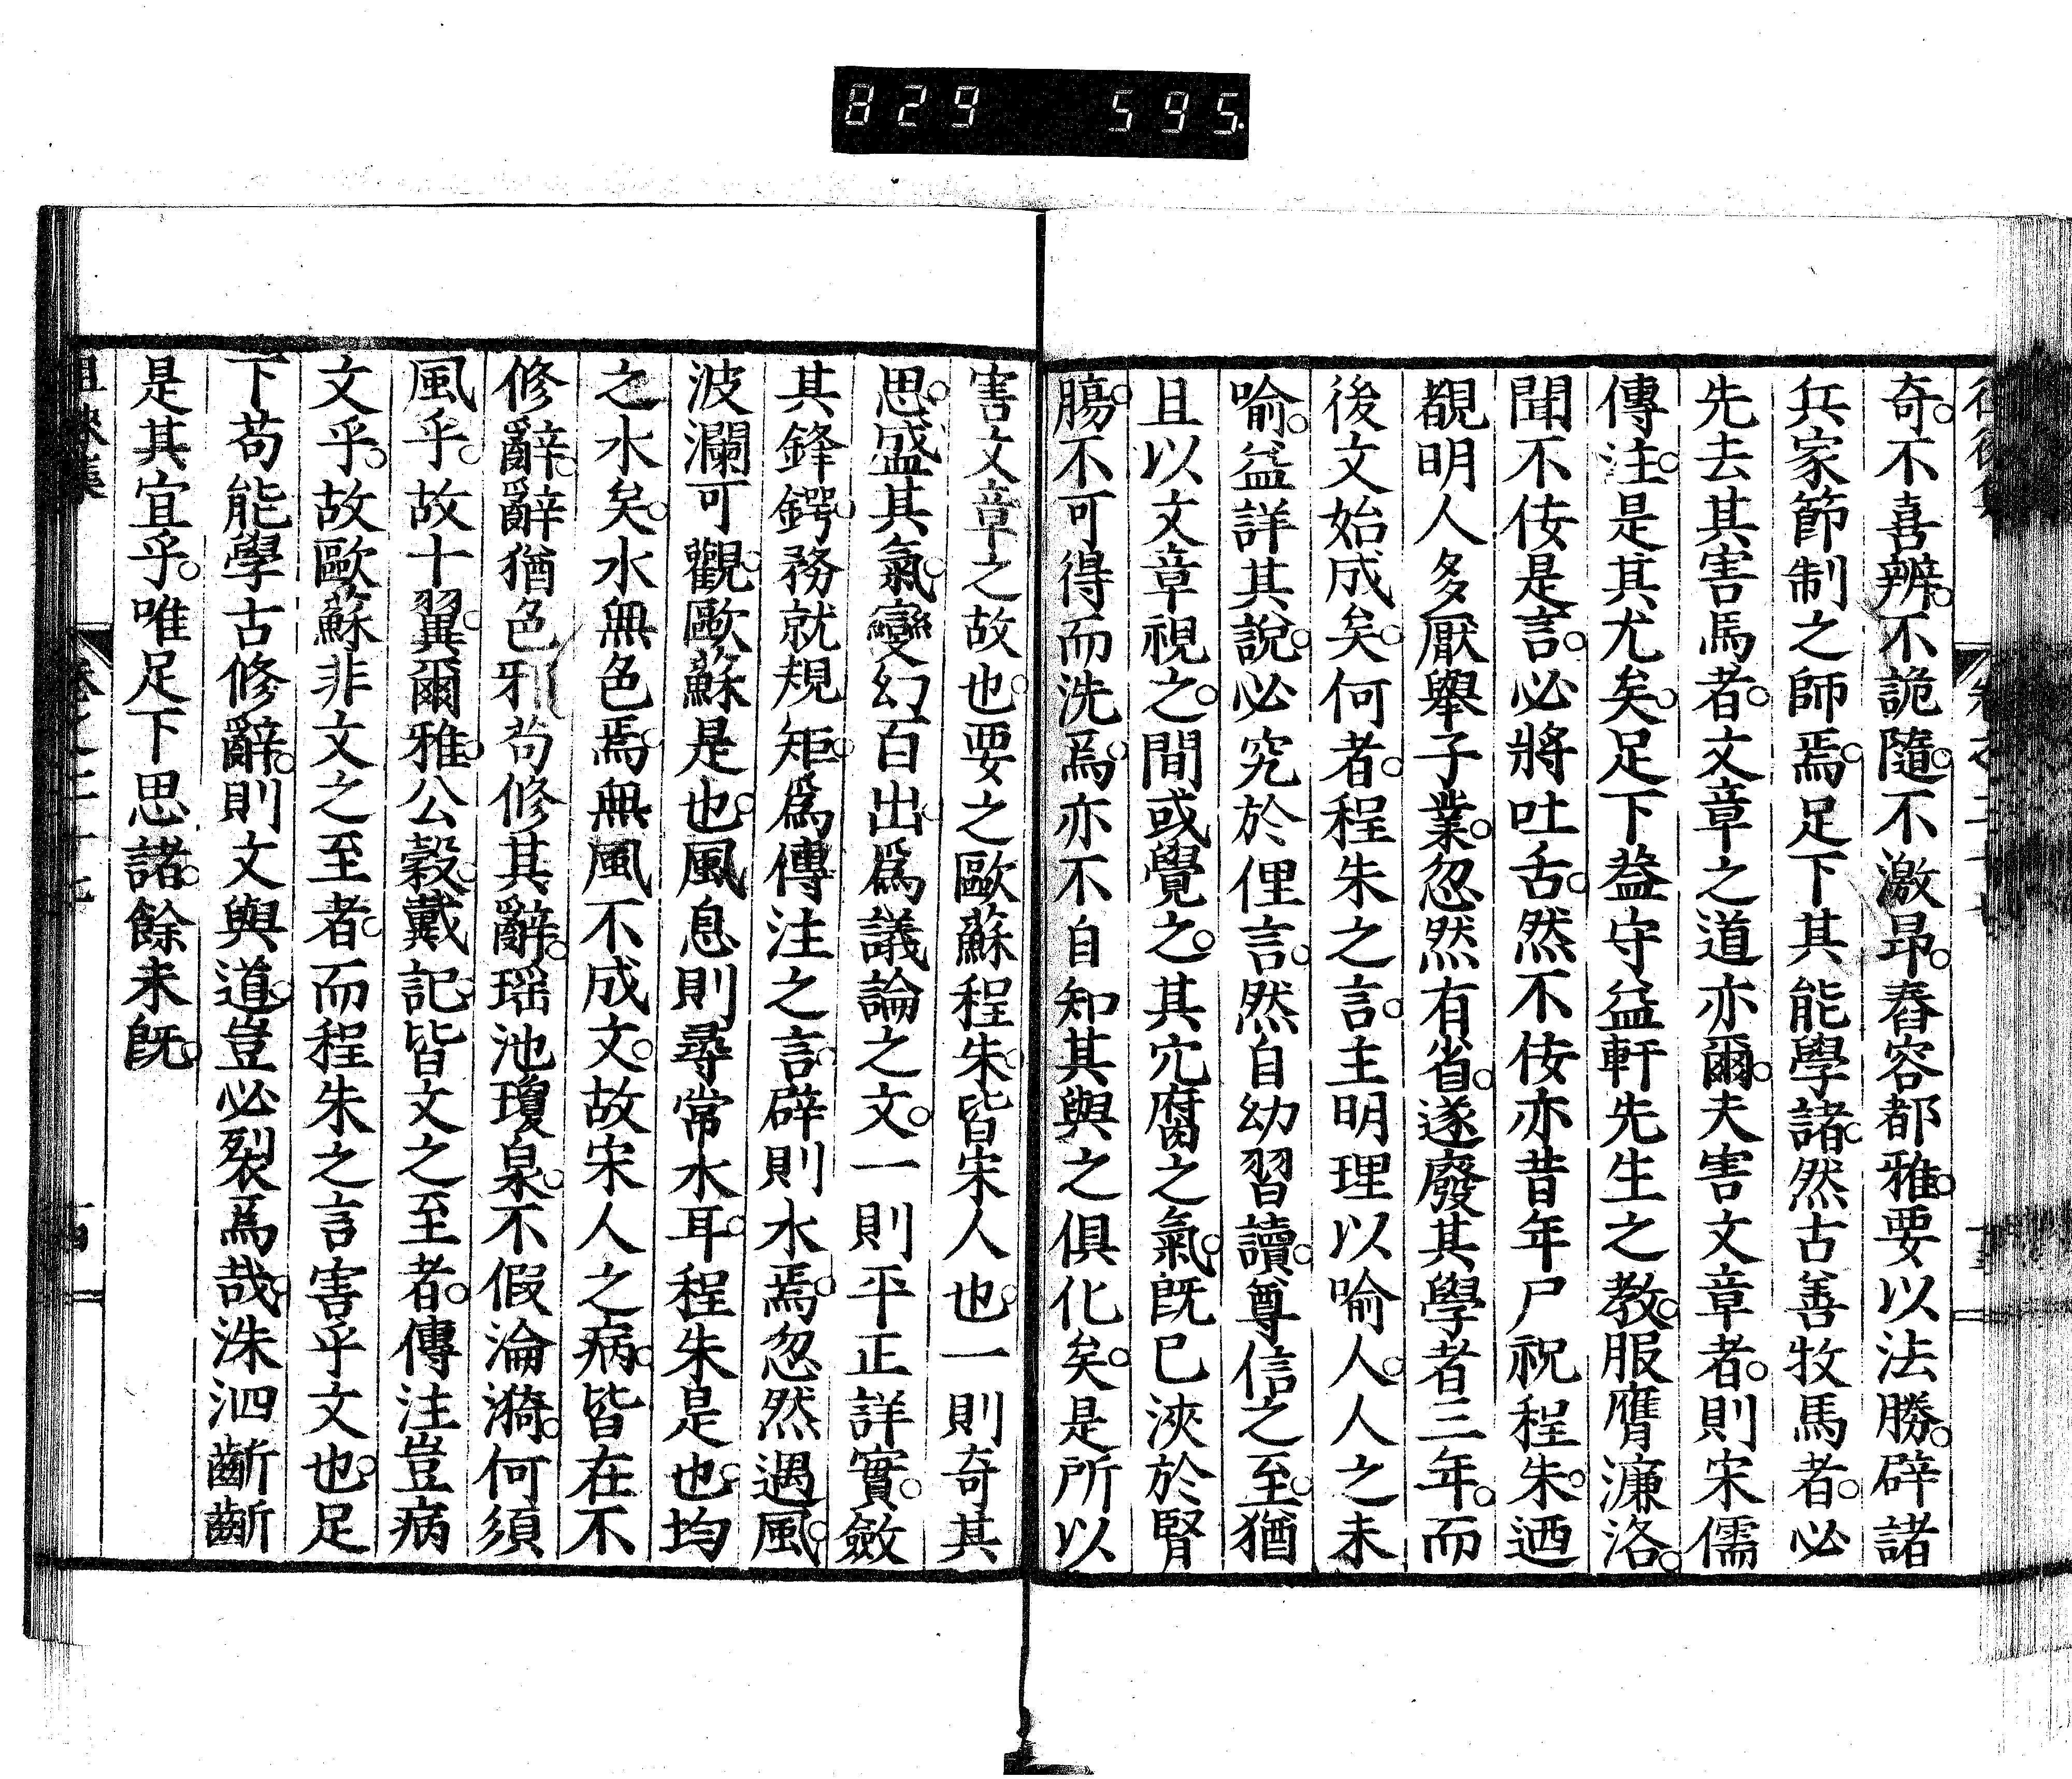 829 595
奇。不喜辨。不詭隨。不激昂。舂容都雅。要以法勝。辟諸
兵家節制之師焉。足下其能學諸。然古善牧馬者。必
先去其害馬者。文章之道亦爾。夫害文章者。則宋儒
傳注。是其尤矣。足下葢守益軒先生之教。服膺濂洛。
聞不佞是言。必將吐舌。然不佞亦昔年尸祝程朱。迺
覩明人多厭舉子業。忽然有省。遂廢其學者三年。而
後文始成矣。何者。程朱之言。主明理以喻人。人之未
喻。益詳其說。必究於俚言。然自幼習讀。尊信之至。猶
且以文章視之。間或覺之。其宂腐之氣。既已浹於腎
膓。不可得而洗焉。亦不自知其與之俱化矣。是所以
害文章之故也。要之歐蘇程朱。皆宋人也。一則奇其
思。盛其氣。變幻百出。爲議論之文。一則平正詳實。斂
其鋒鍔。務就規矩。爲傳注之言。辟則水焉。忽然遇風。
波瀾可觀。歐蘇是也。風息則尋常水耳。程朱是也。均
之水矣。水無色焉。無風不成文。故宋人之病。皆在不
修辭。辭猶色邪。苟修其辭。瑶池瓊泉。不假淪漪。何須
風乎。故十翼。爾雅。公榖。戴記。皆文之至者。傳注豈病
文乎。故歐蘇非文之至者。而程朱之言害乎文也。足
下苟能學古修辭。則文與道。豈必裂焉哉。洙泗齗齗
是其宜乎。唯足下思諸。餘未既。